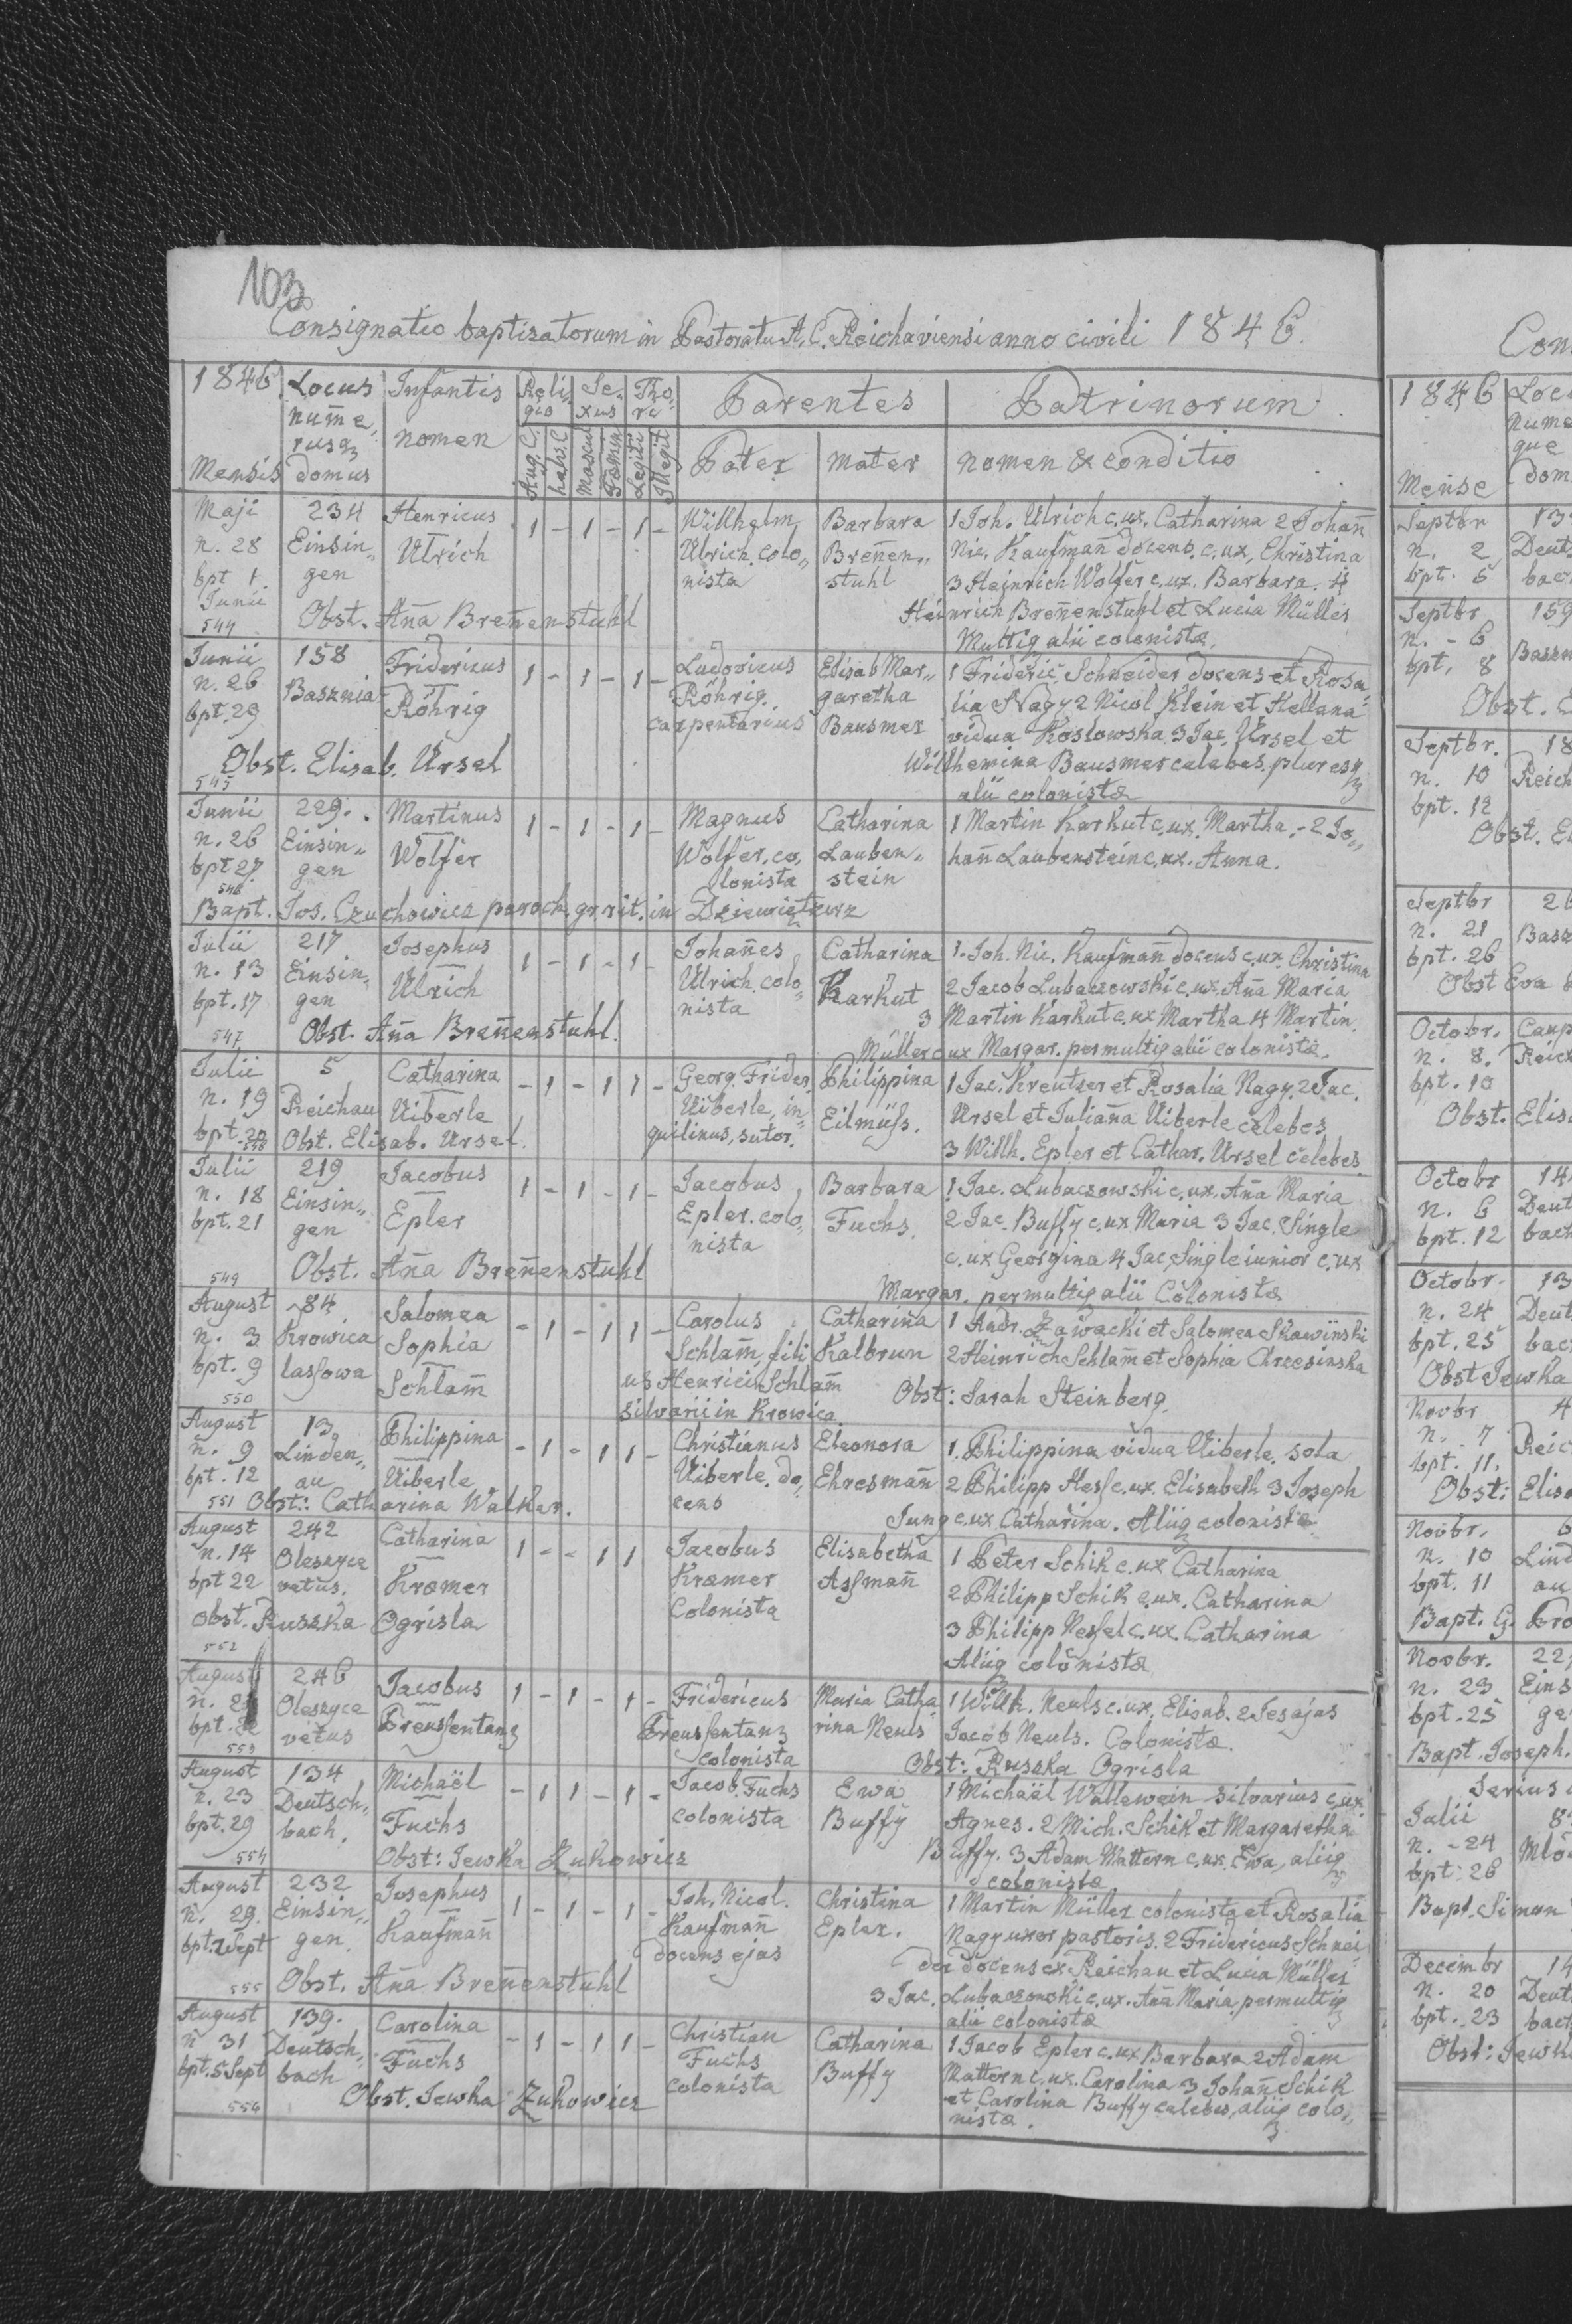 103
Consignatio baptisatorum in Pastoratu A. C. Reichaviensi anno civili 1846.
1846 Locus nume, rusq domus Infantis nomen Reli, gio Se, xus Tho, ri Parentes Patrinorum
Mensis Aug. C. helv. C Mascul Fœmin Legiti Illegit Pater Mater nomen & conditio
Maji 234 Henricus 1 - 1 - 1 - Willhelm Barbara 1 Joh. Ulrich c. ux. Catharina 2 Johañ
n. 28 Einsin„ Ulrich Ulrich. colo„ Breñen„ Nic. Kaufmañ docens. c. ux. Christina
bpt 1. gen nista stuhl 3 Heinrich Wolfer c. ux. Barbara. 4
Junii Obst. Aña Breñenstuhl Heinrich Breñenstuhl et Lucia Müller
544 Multiq alii colonistæ.
Junii 158 Fridericus 1 - 1 - 1 - Ludovicus Elisab Mar„ 1 Frideric. Schneider docens et Rosa„
n. 26 Basznia Röhrig Röhrig. garetha lia Nagy 2 Nicol Klein et Hellena
bpt. 29 carpentarius Bausmer vidua Koslowska 3 Jac. Ursel et
Obst. Elisab. Ursel Willhemina Bausmer celebes. pluresq
545 alii colonistæ
Junii 229. Martinus 1 - 1 - 1 - Magnus Catharina 1 Martin Karhut c. ux. Martha. - 2 Jo„
n. 26 Einsin„ Wolfer Wolfer. co„ Lauben„ hañ Laubenstein c. ux. Anna.
bpt 27. gen lonista stein
546
Bapt. Jos. Czuchowicz paroch. gr. rit. in
Julii 217 Josephus 1 - 1 - 1 - Johañes Catharina 1. Joh. Nic. Kaufmañ docens c. ux. Christina
n. 13 Einsin„ Ulrich Ulrich. colo„ Karhut 2 Jacob Lubaczowski c. ux. Aña Maria
bpt. 17 gen nista 3 Martin Karhut c. ux Martha 4 Martin
547 Obst. Aña Breñenstuhl. Müller c ux Margar. permultiq alii colonistæ.
Julii 5 Catharina - 1 - 1 1 - Georg. Frider. Philippina 1 Jac. Kreutzer et Rosalia Nagy. 2 Jac.
n. 19 Reichau Uiberle Uiberle, in„ Eilmüſs. Ursel et Juliaña Uiberle celebes
bpt. 20 Obst. Elisab. Ursel. quilinus, sutor. 3 Willh. Epler et Cathar. Ursel celebes.
548
Julii 219 Jacobus 1 - 1 - 1 - Jacobus Barbara 1 Jac. Lubaczowski c. ux. Aña Maria
n. 18 Einsin„ Epler Epler. colo„ Fuchs. 2 Jac. Buffy c. ux Maria 3 Jac. Single
bpt. 21 gen nista c. ux Georgina 4 Jac. Single iunior c. ux
549 Obst. Aña Breñenstuhl Margar. permultiq alii Colonistæ
August 84 Salomea - 1 - 1 1 - Carolus Catharina 1 Andr. Zawacki et Salomea Skawiński
n. 3 Krowica Sophia Schlam̃, fili Kalbrun 2 Heinrich Schlam̃ et Sophia
bpt. 9 laſsowa Schlam̃ us Henrici Schlam̃ Obst: Sarah Steinberg.
550 silvarii in Krowica.
August 13 Philippina - 1 - 1 1 - Christianus Eleonora 1. Philippina vidua Uiberle. sola
n. 9 Linden„ Uiberle Uiberle. do„ Ehresmañ 2 Philipp Heſs c. ux. Elisabeth 3 Joseph
bpt. 12 au cens Jung c. ux. Catharina. Aliiq colonistæ
551 Obst: Catharina Walker.
August 242 Catharina 1 - - 1 1 Jacobus Elisabetha 1 Peter Schik c. ux Catharina
n. 14 Oleszyce Kræmer Kræmer Aſsmañ 2 Philipp Schik c. ux. Catharina
bpt 22 vetus. Colonista 3 Philipp Neſsel c. ux. Catharina
Obst. Ruszka Ogrisla Aliiq colonistæ
552
August 246 Jacobus 1 - 1 - 1 - Fridericus Maria Catha„ 1 Willh. Neuls c. ux. Elisab. 2 Jesajas
n. 2 Oleszyce Freuſsentanz Freuſsentanz rina Neuls Jacob Neuls. Colonistæ.
bpt. vetus colonista Obst: Ruszka Ogrisla
553
August 134 Michaël - 1 1 - 1 - Jacob. Fuchs Ewa 1 Michaël Wallewein silvarius c. ux
n. 23 Deutsch„ Fuchs colonista Buffy Agnes. 2 Mich. Schik et Margaretha
bpt. 29 bach. Buffy. 3 Adam Mattern c. ux. Ewa, aliiq
554 Obst: Jewka Zukowicz colonistæ.
August 232 Josephus 1 - 1 - 1 - Joh. Nicol. Christina 1 Martin Müller colonista et Rosalia
n. 29. Einsin„ Kaufmañ Kaufmañ Epler. Nagy uxor pastoris. 2 Fridericus Schnei„
bpt. 2 Sept gen. docens ejas der docens ex Reichau et Lucia Müller
555 Obst. Aña Breñenstuhl 3 Jac. Lubaczowski c. ux. Aña Maria, permultiq
alii colonistæ
August 139. Carolina - 1 - 1 1 - Christian Catharina 1 Jacob Epler c. ux Barbara 2 Adam
n 31 Deutsch„ Fuchs Fuchs Buffy Mattern c. ux. Carolina 3 Johañ Schik
bpt. 5 Sept bach colonista et Carolina Buffy celebes, aliiq colo„
556 Obst. Jewka Zukowicz nistæ.
Con
1846 Loc
Nume
que
Mense dom
Septbr 13
n. 2 Deut
bpt. 6 bac
Septbr 159
n. - 6 Baszn
bpt. 8
Obst.
Septbr. 18
n. 10 Reich
bpt. 12
Obst. El
Septbr 26
n. 21 Basz
bpt. 26
Obst Eva
Octobr. Caup
n. 8. Reich
bpt. 10
Obst. Elis
Octobr 14
n. 6 Deut
bpt. 12 bach
Octobr. 13
n. 24 Deut
bpt. 25 bac
Obst Jewka
Novbr 4
n. 7 Reic
bpt. 11.
Obst: Elis
Novbr. 6
n. 10 Lind
bpt. 11 au
Bapt. G. Fro
Novbr. 22
n. 23 Eins
bpt. 25 ge
Bapt. Joseph.
Serius
Julii 8
n. - 24 Mło
bpt. 26
Bapt. Simon
Decembr 14
n. 20 Deut
bpt. 23 bach
Obst: Jewk